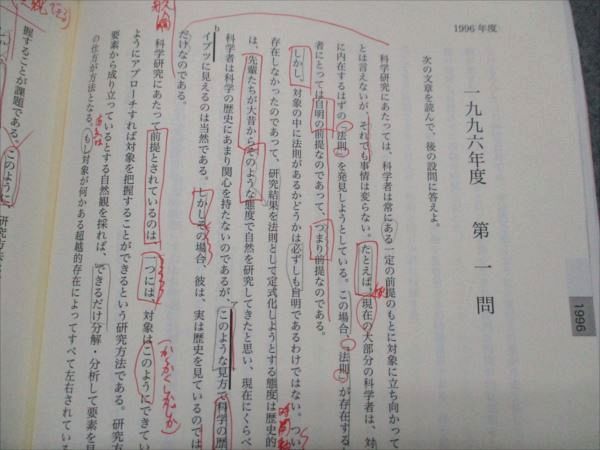 1996年度
一九九六年度　第一問
次の文章を読んで、後の設問に答えよ。
科学研究にあたっては、科学者は常にある一定の前提のもとに対象に立ち向かって
とは言えないが、それでも事情は変らない。たとえば、現在の大部分の科学者は、対
に内在するはずの「法則」を発見しようとしている。この場合、「法則」が存在する
者にとっては自明の前提なのであって、つまり前提なのである。
しかし、対象の中に法則があるかどうかは必ずしも自明であるわけではない。つい
存在しなかったのであって、研究結果を法則として定式化しようとする態度は歴史的
は、先輩たちが大昔からそのような態度で自然を研究してきたと思い、現在にくらべ
科学者は科学の歴史にあまり関心を持たないのであるが、このような見方で科学の歴
イブツに見えるのは当然である。しかしその場合、彼は、実は歴史を見ているのでは
だけなのである。
科学研究にあたって前提とされているのは、一つには、対象はこのようにできてい
ようにアプローチすれば対象を把握することができるという研究方法である。研究方
要素から成り立っているとする自然観を採れば、できるだけ分解・分析して要素を見
の仕方が方法となる。もし対象が何かある超越的存在によってすべて左右されている
握することが課題である。このように、研究方法
1996
ア
b